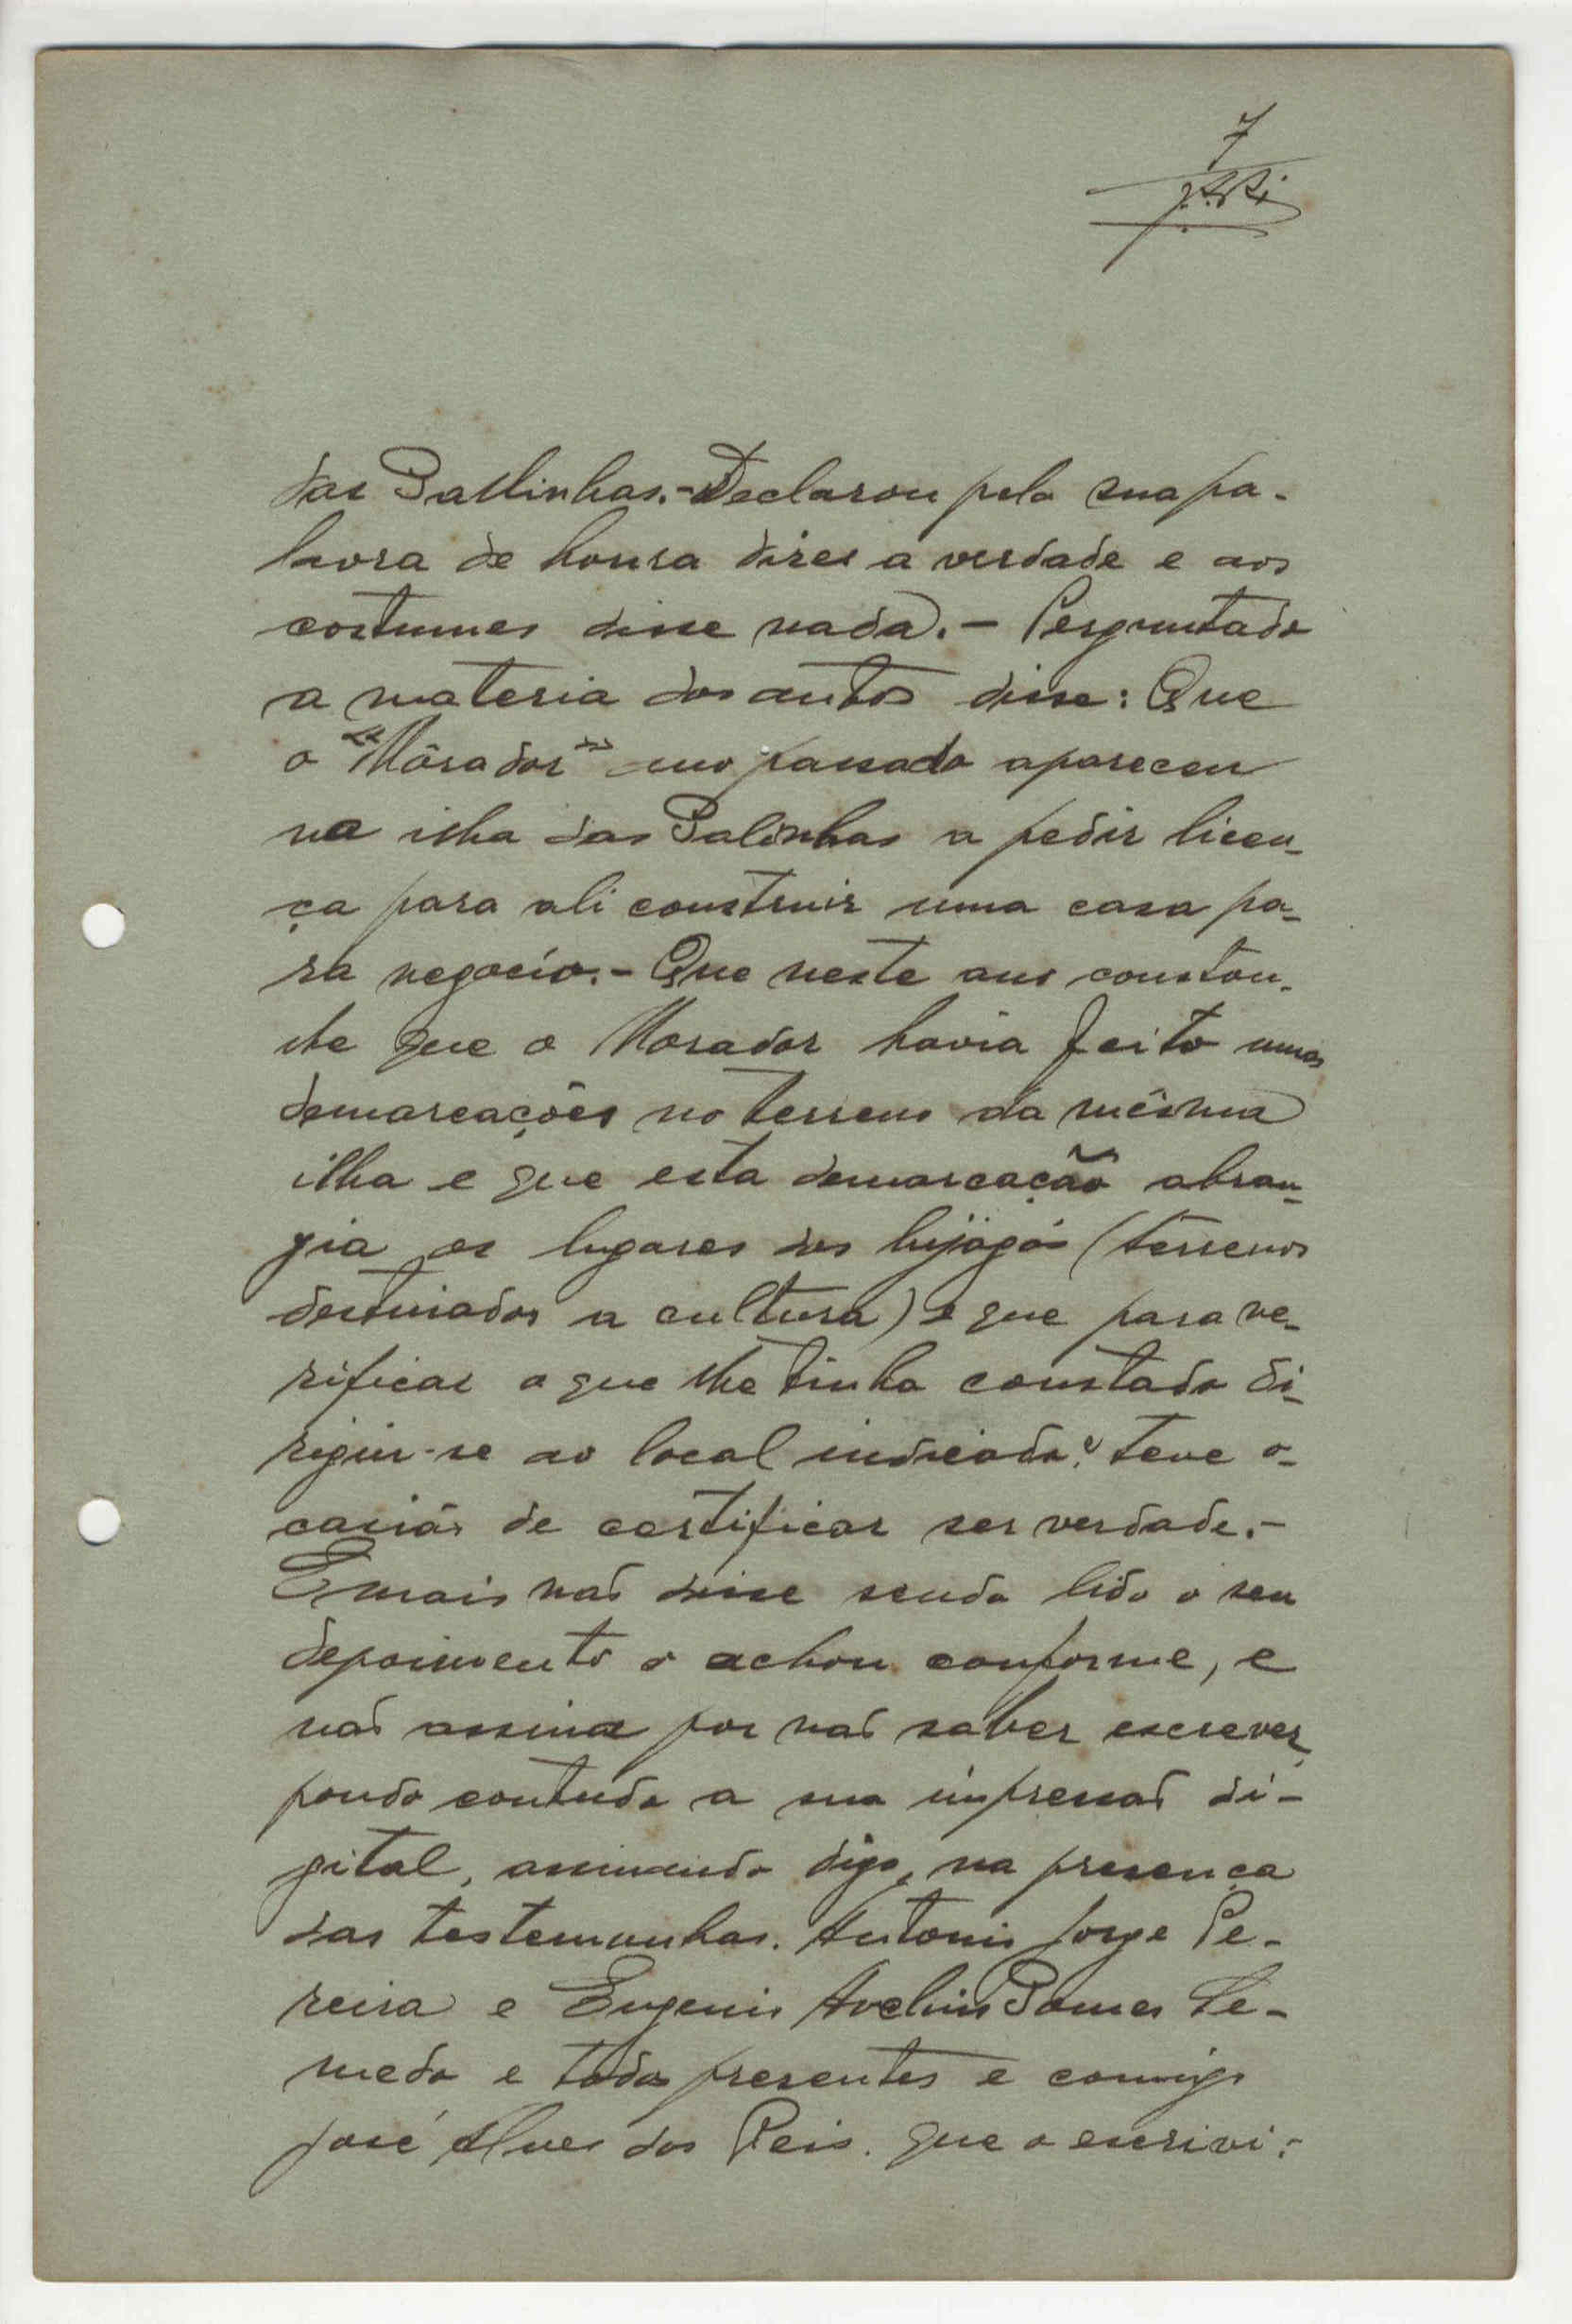 7
das Gallinhas.- Declarou pela sua pa-
lavra de honra dizer a verdade e aos
costumes disse nada.- Perguntado
a materia dos autos disse: Que
o "Môrador" ano passado apareceu
na ilha das Galinhas a pedir licen-
ça para ali construir uma casa pa-
ra negocio.- Que neste ano constou-
lhe que o Morador havia feito umas
demarcações no terreno da mêsma
ilha e que esta demarcação abran-
gia os lugares dos bijagós (terrenos
destinados a cultura) e que para ve-
rificar o que lhe tinha constado di-
rigiu-se ao local indicado e teve o-
casião de certificar ser verdade.-
E mais não disse sendo lido o seu
depoimento o achou conforme, e
não assina por não saber escrever,
pondo contudo a sua impressão di-
gital, assinando digo, na presença
das testemunhas. Antonio Jorge Pe-
reira e Eugenio Avelino Gomes Se-
medo e todos presentes e comigo
José Alves dos Reis. que o escrivi:-